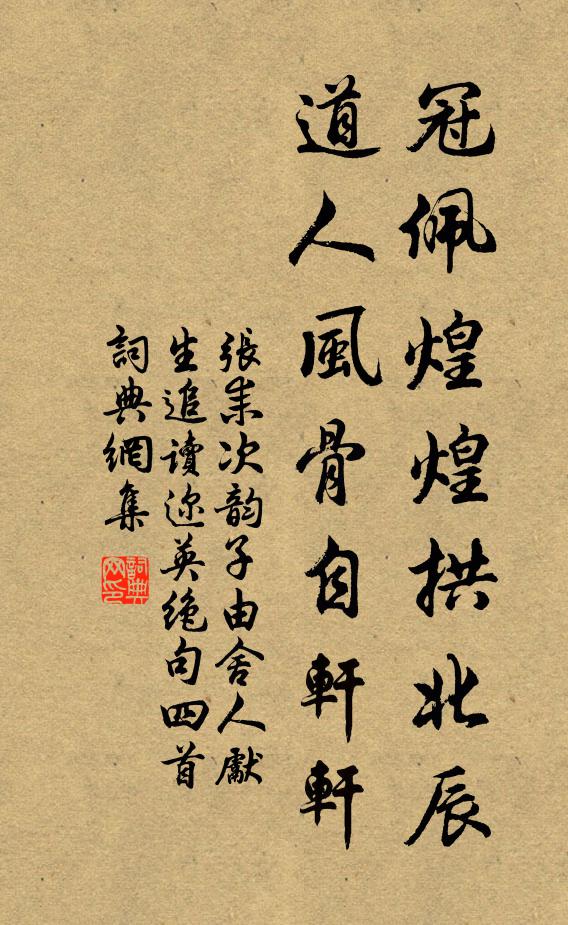 冠佩煌煌拱北辰
道人風骨自軒軒
張耒次韵子由舍人獻
生追讀迩英絶句四首
詞典網集
詞典
网印